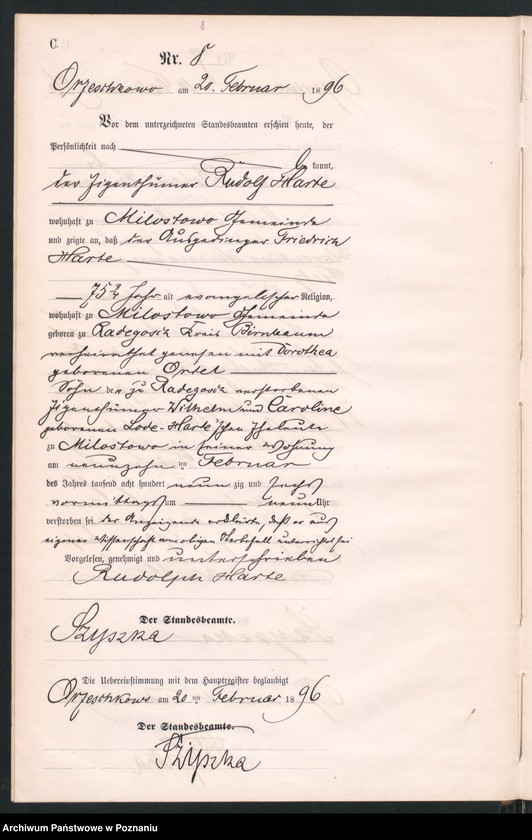 8
C.
Nr. 8
Orzeschkowo am 20. Februar 1896
Vor dem unterzeichneten Standesbeamten erschien heute, der
Persönlichkeit nach be kannt,
der Eigenthümer Rudolf Harte
wohnhaft zu Milostowo Gemeinde
und zeigte an, daß der Ausgedinger Friedrich
Harte
75 3/4 Jahr alt evangelischer Religion,
wohnhaft zu Milostowo Gemeinde
geboren zu Radegosz Kreis Birnbaum
verheirathet gewesen mit Dorothea
geborenen Ortel
Sohn der zu Radegosz verstorbenen
Eigenthümer Wilhelm und Caroline
geborenen Lode-Harte'schen Eheleute
zu Milostowo in seiner Wohnung
am neunzehn ten Februar
des Jahres tausend acht hundert neun zig und sechs
vormittags um neun Uhr
verstorben sei der Anzeigende erklärte, daß er aus
eigener Wissenschaft von obigen Sterbefall unterrichtet sei
Vorgelesen, genehmigt und unterschrieben
Rudolph Harte
Der Standesbeamte.
Szyszka
Die Uebereinstimmung mit dem Hauptregister beglaubigt
Orzeschkowo am 20 ten Februar 1896
Der Standesbeamte.
Szyszka
Archiwum Państwowe w Poznaniu